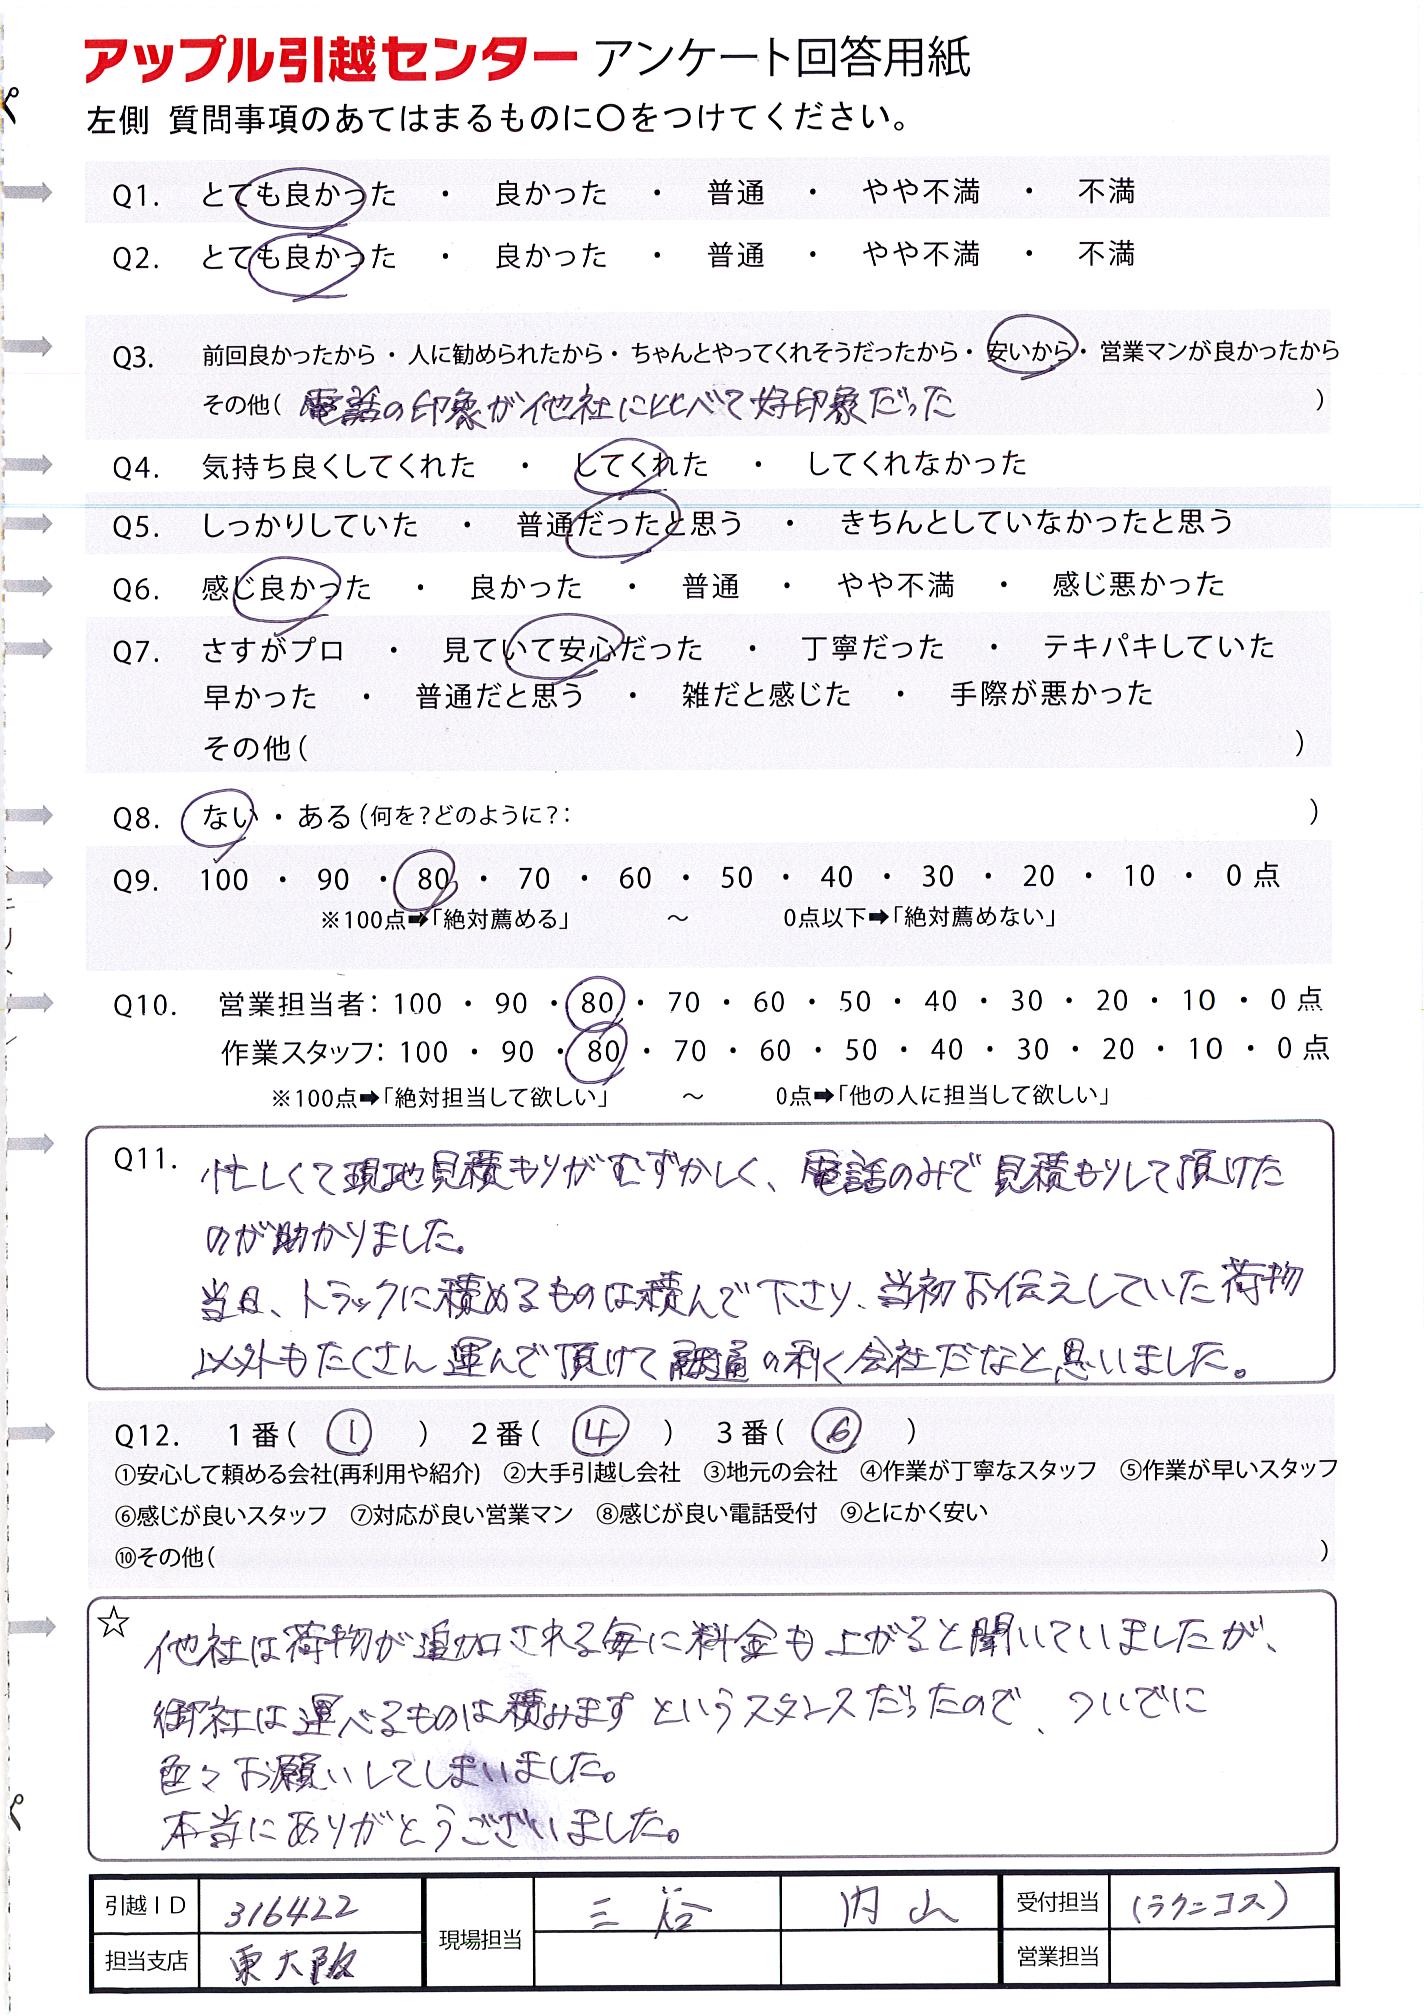 アップル引越センター アンケート回答用紙
左側 質問事項のあてはまるものに〇をつけてください。
Q1. とても良かった ・ 良かった ・ 普通 ・ やや不満 ・ 不満
Q2. とても良かった ・ 良かった ・ 普通 ・ やや不満 ・ 不満
Q3. 前回良かったから・人に勧められたから・ちゃんとやってくれそうだったから・安いから・営業マンが良かったから
その他( 電話の印象が他社にくらべて好印象だった )
Q4. 気持ち良くしてくれた ・ してくれた ・ してくれなかった
Q5. しっかりしていた ・ 普通だったと思う ・ きちんとしていなかったと思う
Q6. 感じ良かった ・ 良かった ・ 普通 ・ やや不満 ・ 感じ悪かった
Q7. さすがプロ ・ 見ていて安心だった ・ 丁寧だった ・ テキパキしていた
早かった ・ 普通だと思う ・ 雑だと感じた ・ 手際が悪かった
その他( )
Q8. ない ・ ある(何を?どのように?: )
Q9. 100 ・ 90 ・ 80 ・ 70 ・ 60 ・ 50 ・ 40 ・ 30 ・ 20 ・ 10 ・ 0点
※100点➡「絶対薦める」 ～ 0点以下➡「絶対薦めない」
Q10. 営業担当者: 100 ・ 90 ・ 80 ・ 70 ・ 60 ・ 50 ・ 40 ・ 30 ・ 20 ・ 10 ・ 0点
作業スタッフ: 100 ・ 90 ・ 80 ・ 70 ・ 60 ・ 50 ・ 40 ・ 30 ・ 20 ・ 10 ・ 0点
※100点➡「絶対担当して欲しい」 ～ 0点➡「他の人に担当して欲しい」
Q11. 忙しくて現地見積もりがむずかしく、電話のみで見積もりして頂けた
のが助かりました。
当日、トラックに積めるものは積んで下さり、当初お伝えしていた荷物
以外もたくさん運んで頂けて融通の利く会社だなと思いました。
Q12. 1番( ① ) 2番( ④ ) 3番( ⑥ )
①安心して頼める会社(再利用や紹介) ②大手引越し会社 ③地元の会社 ④作業が丁寧なスタッフ ⑤作業が早いスタッフ
⑥感じが良いスタッフ ⑦対応が良い営業マン ⑧感じが良い電話受付 ⑨とにかく安い
⑩その他( )
☆ 他社は荷物が追加される毎に料金も上がると聞いていましたが、
御社は運べるものは積みますというスタンスだったので、ついでに
色々お願いしてしまいました。
本当にありがとうございました。
引越ID 316422 現場担当 三谷 内山 受付担当 (ラクニコス)
担当支店 東大阪 営業担当